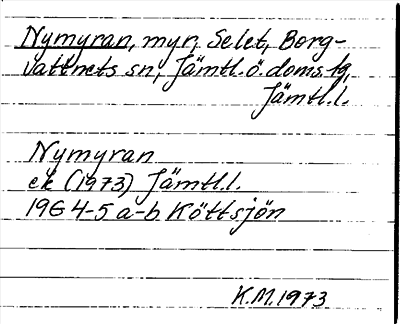 Nymyran, myr, Selet, Borg-
vattnets sn, Jämtl. ö. doms. tg,
Jämtl. l.
Nymyran
ek (1973) Jämtl. l.
19G 4-5 a-b Köttsjön
K.M. 1973